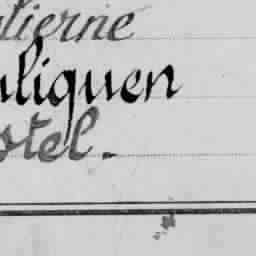 lierne
uliguen
stel.